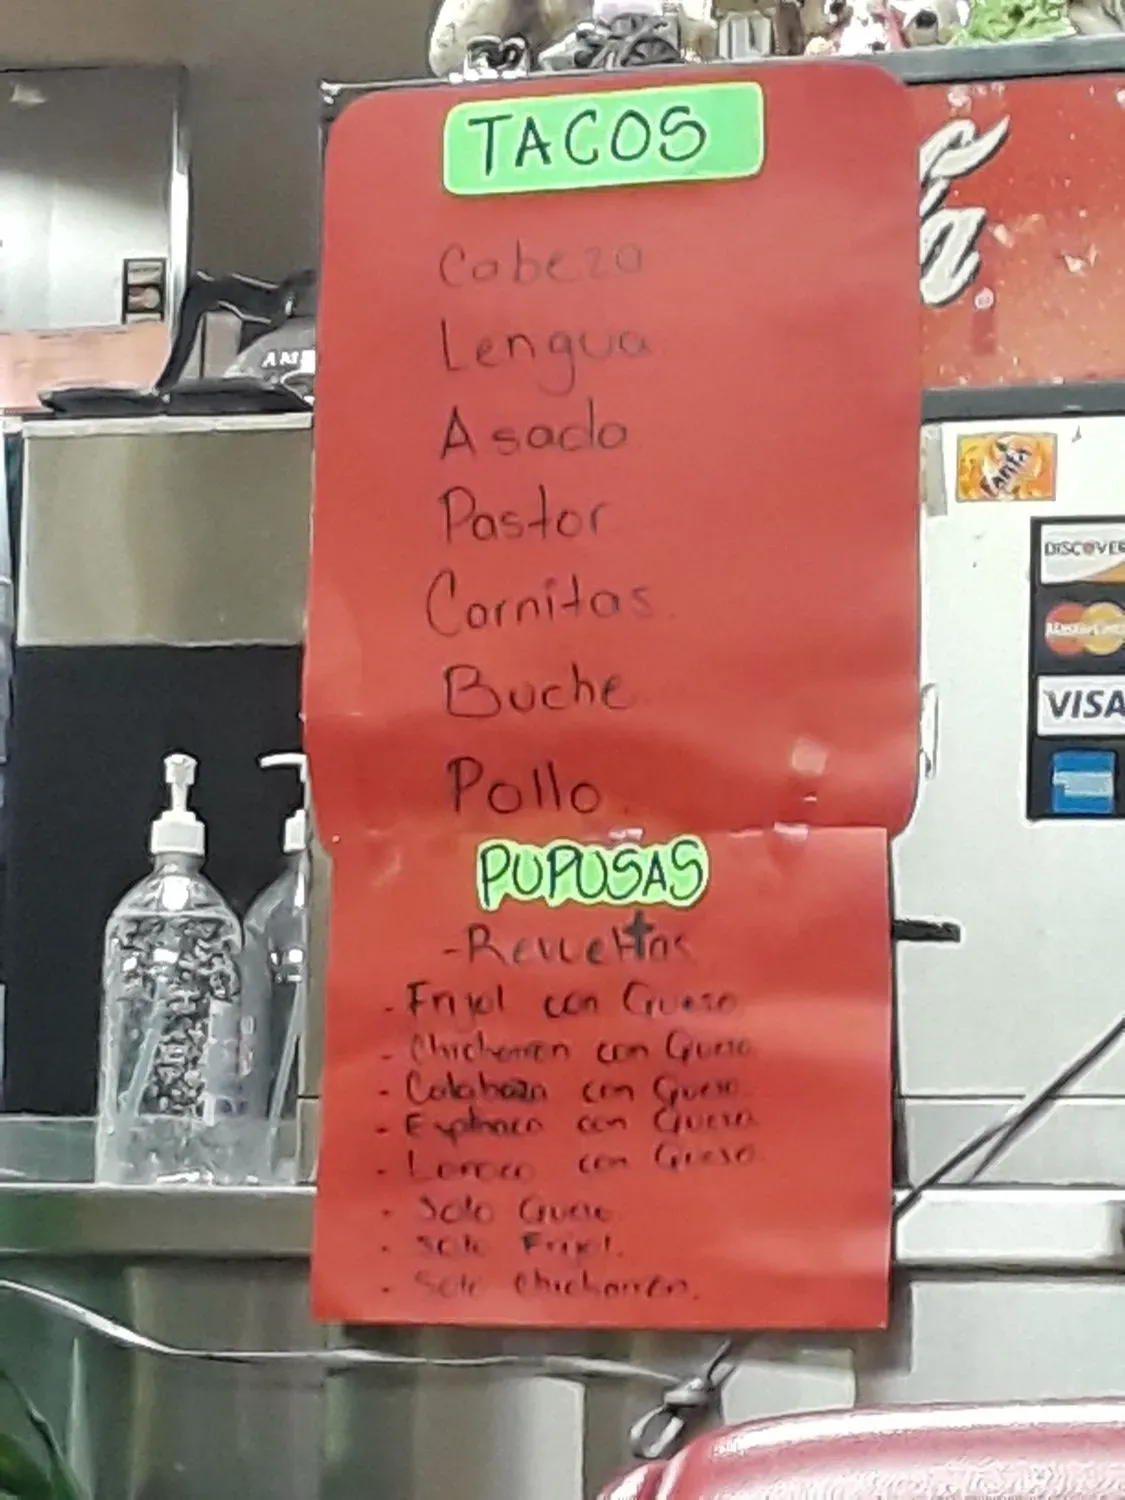 TACOS
Cabeza
Lengua
Asada
Pastor
Carnitas.
Buche
Pollo.
PUPUSAS
-Revueltas
- Frijol con Queso
- Chicharron con Queso
- Calabaza con Queso.
- Espinaca con Queso
- Loroco con Queso
- Solo Queso
- Solo Frijol.
- Solo Chicharron.
AM
Fanta
DISCOVER
MasterCard
VISA